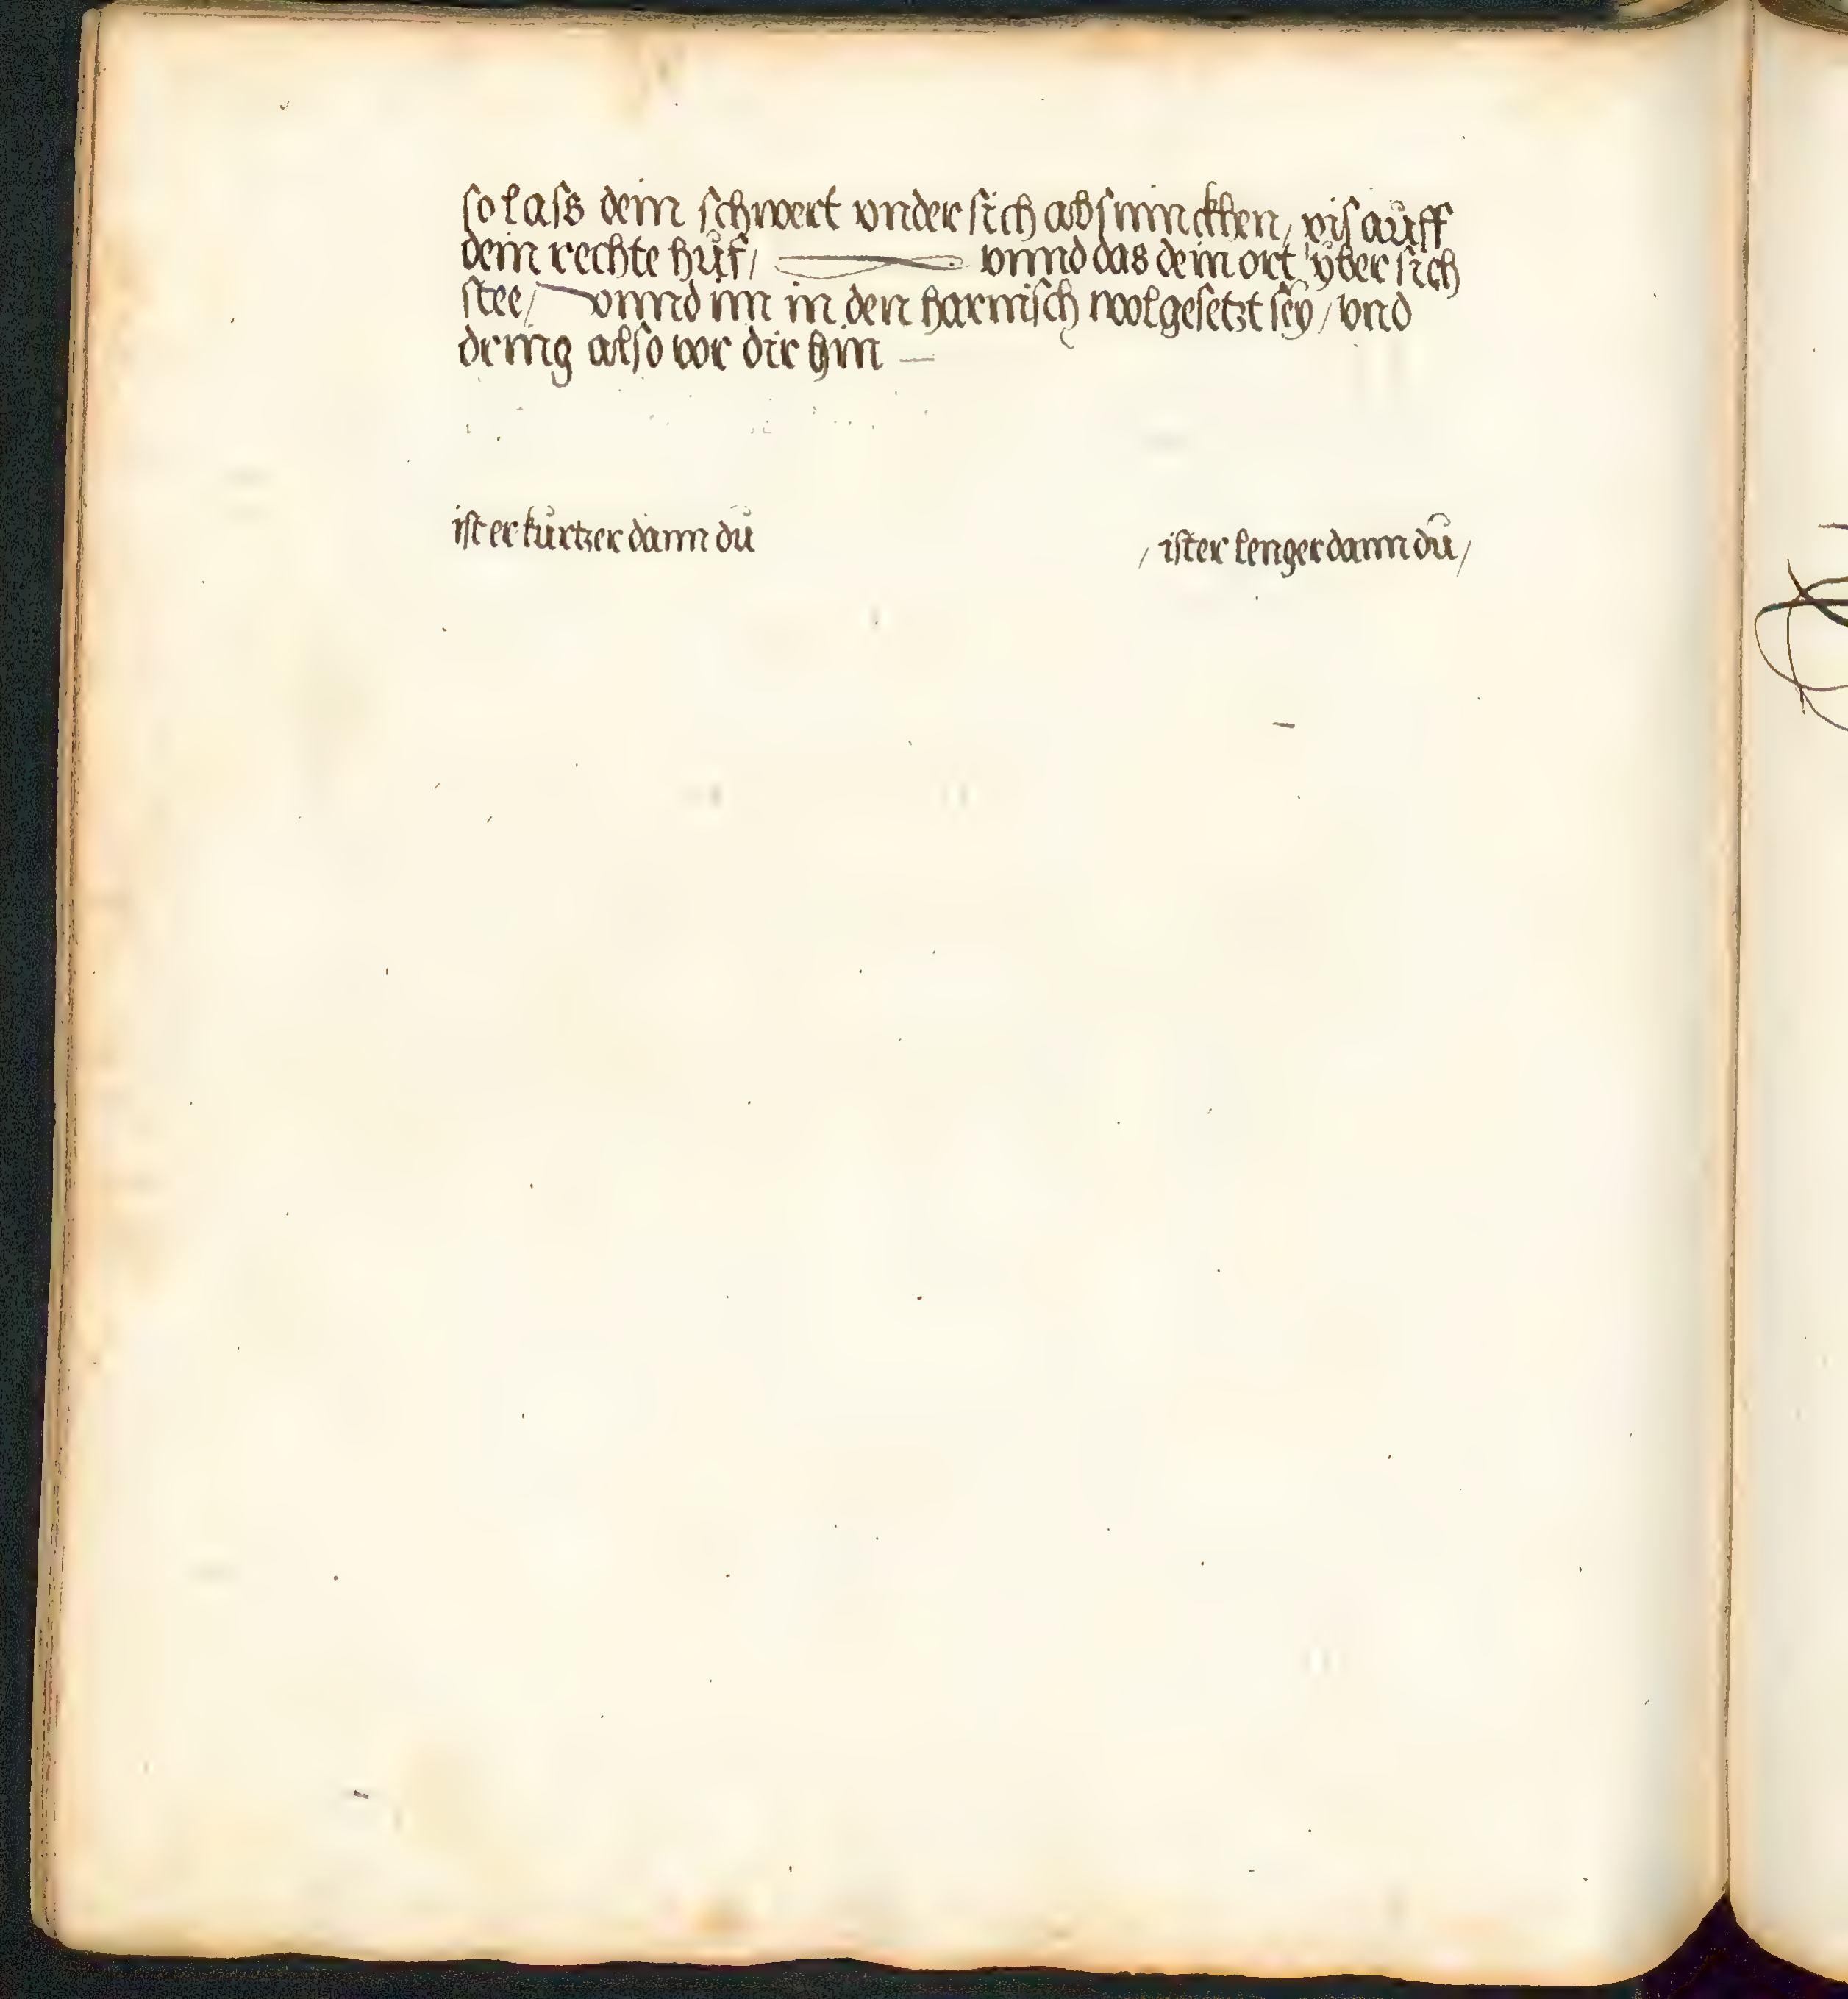 so laſs dein ſchwert vnder ſich abſinnckhen, viſ aůff
dein rechte hůf / vnnd das dein ort ÿber ſich
ſtee / vnnd im in den harniſch wol geſetzt ſeÿ / vnd
dring alſo vor dir hin —
iſt er kůrtzer dann dů
/ iſt er lenger dann dů /